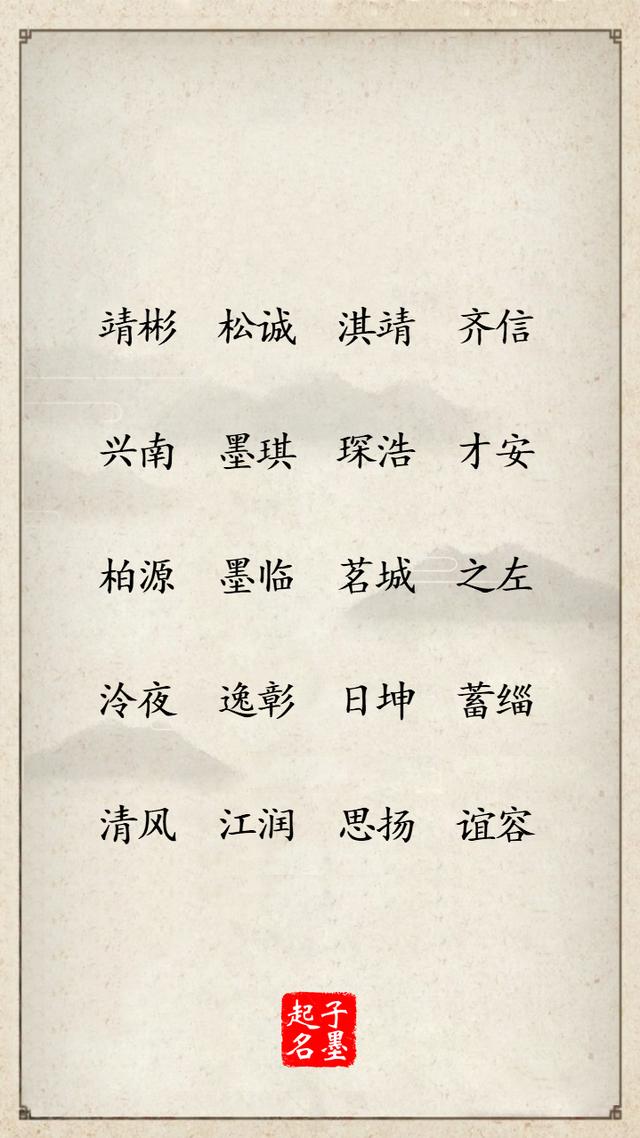 靖彬 松诚 淇靖 齐信
兴南 墨琪 琛浩 才安
柏源 墨临 茗城 之左
泠夜 逸彰 日坤 蓄缁
清风 江润 思扬 谊容
子墨
起名